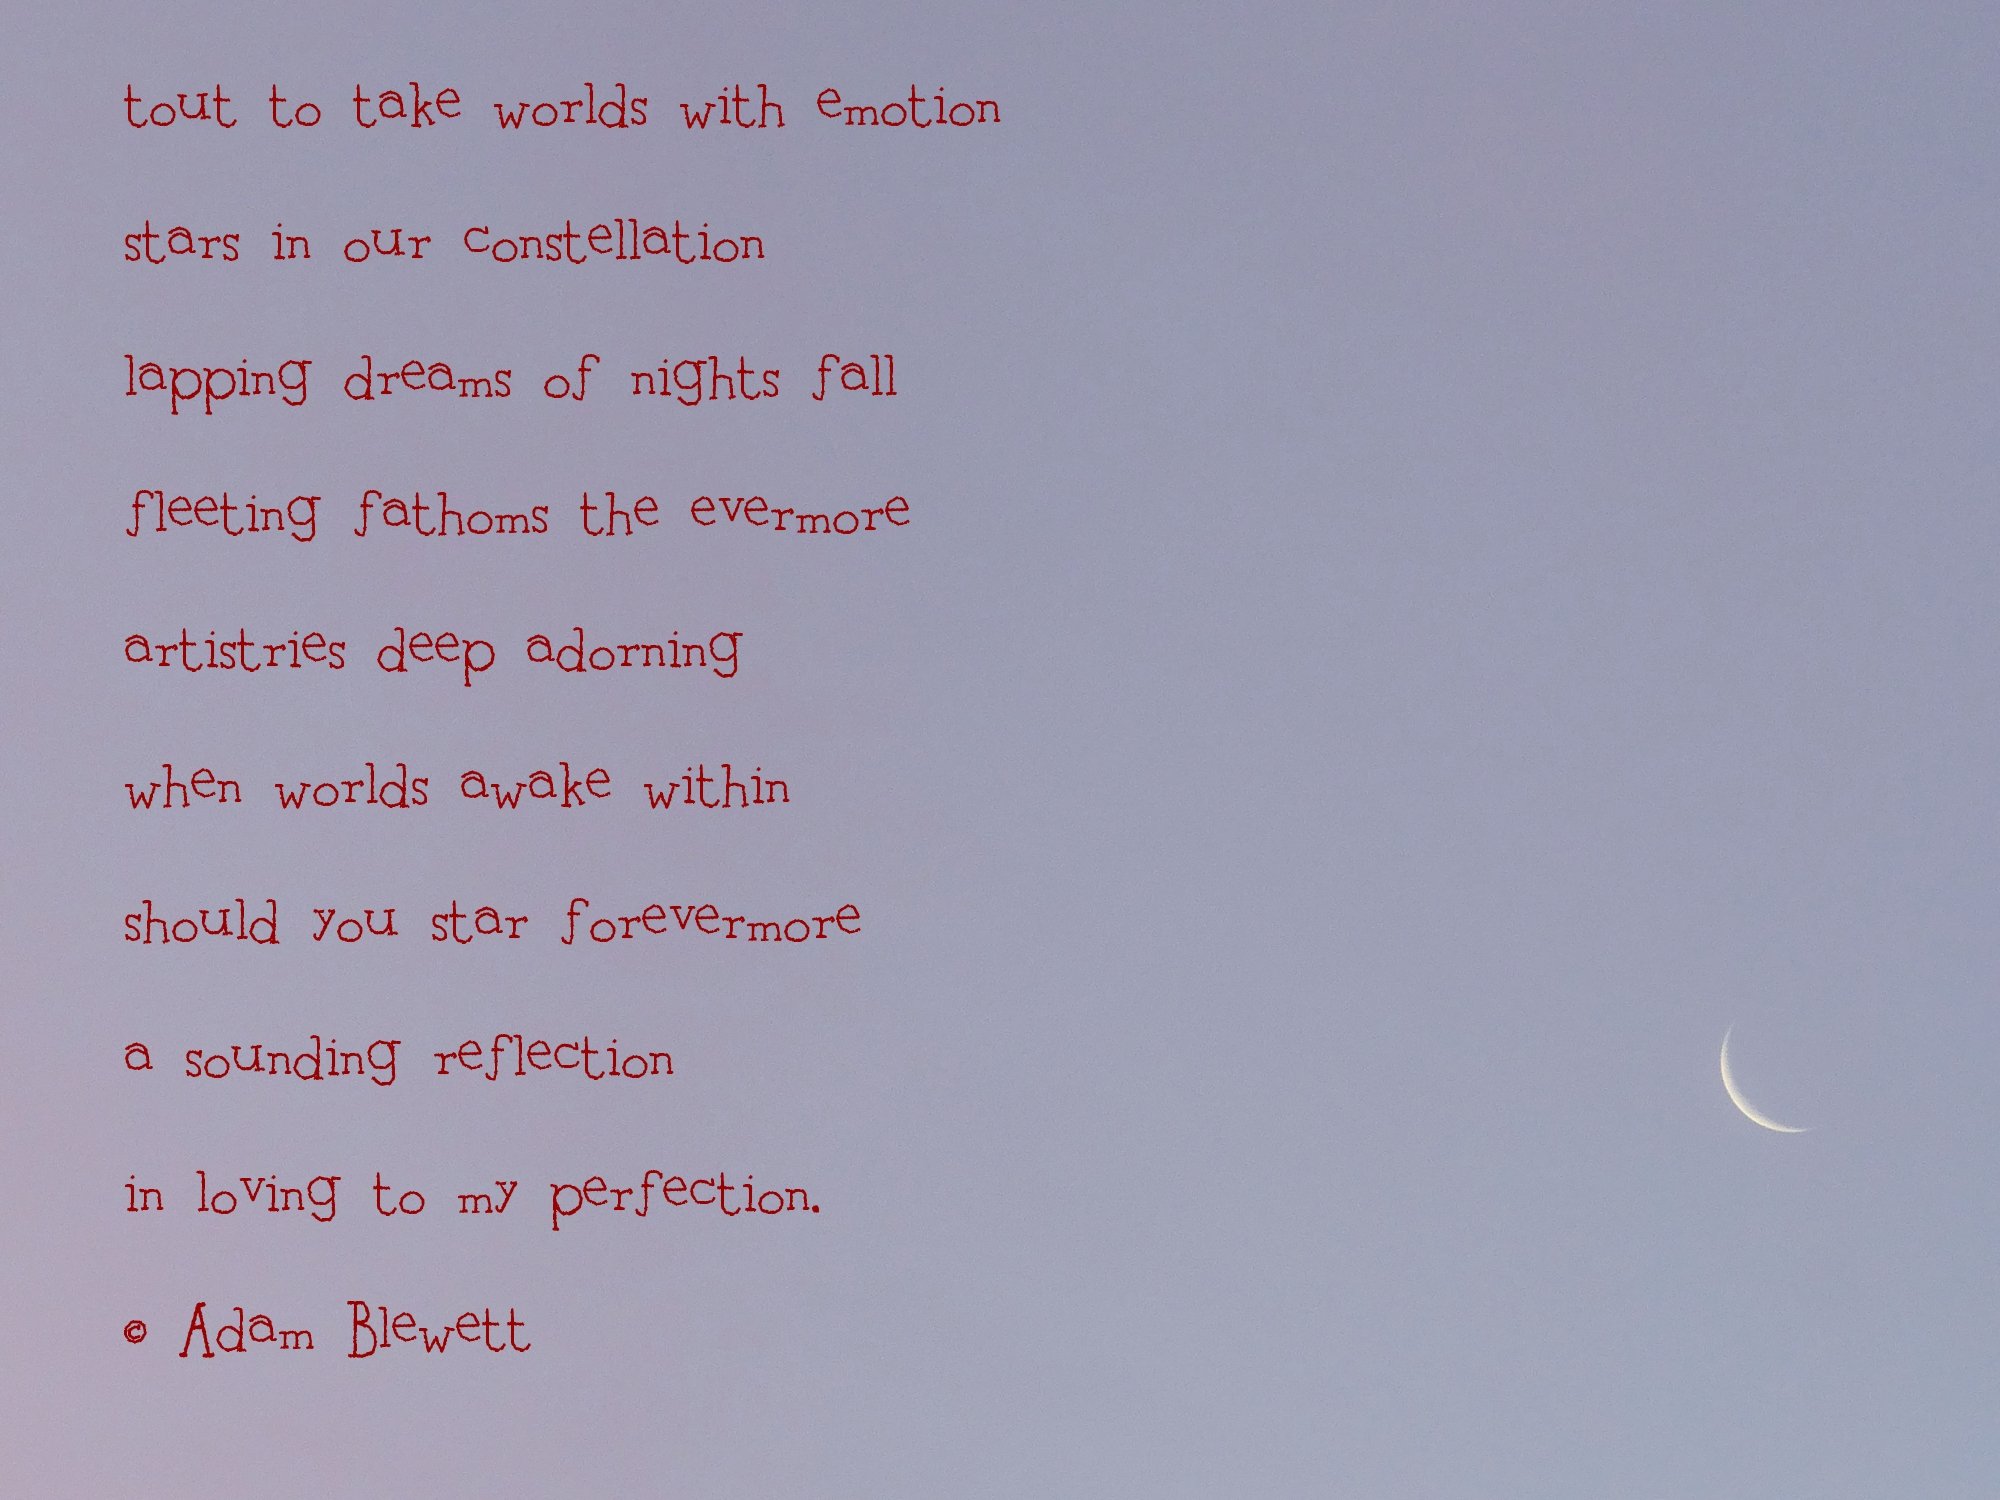 tout to take worlds with emotion
stars in our constellation
lapping dreams of nights fall
fleeting fathoms the evermore
artistries deep adorning
when worlds awake within
should you star forevermore
a sounding reflection
in loving to my perfection.
© Adam Blewett